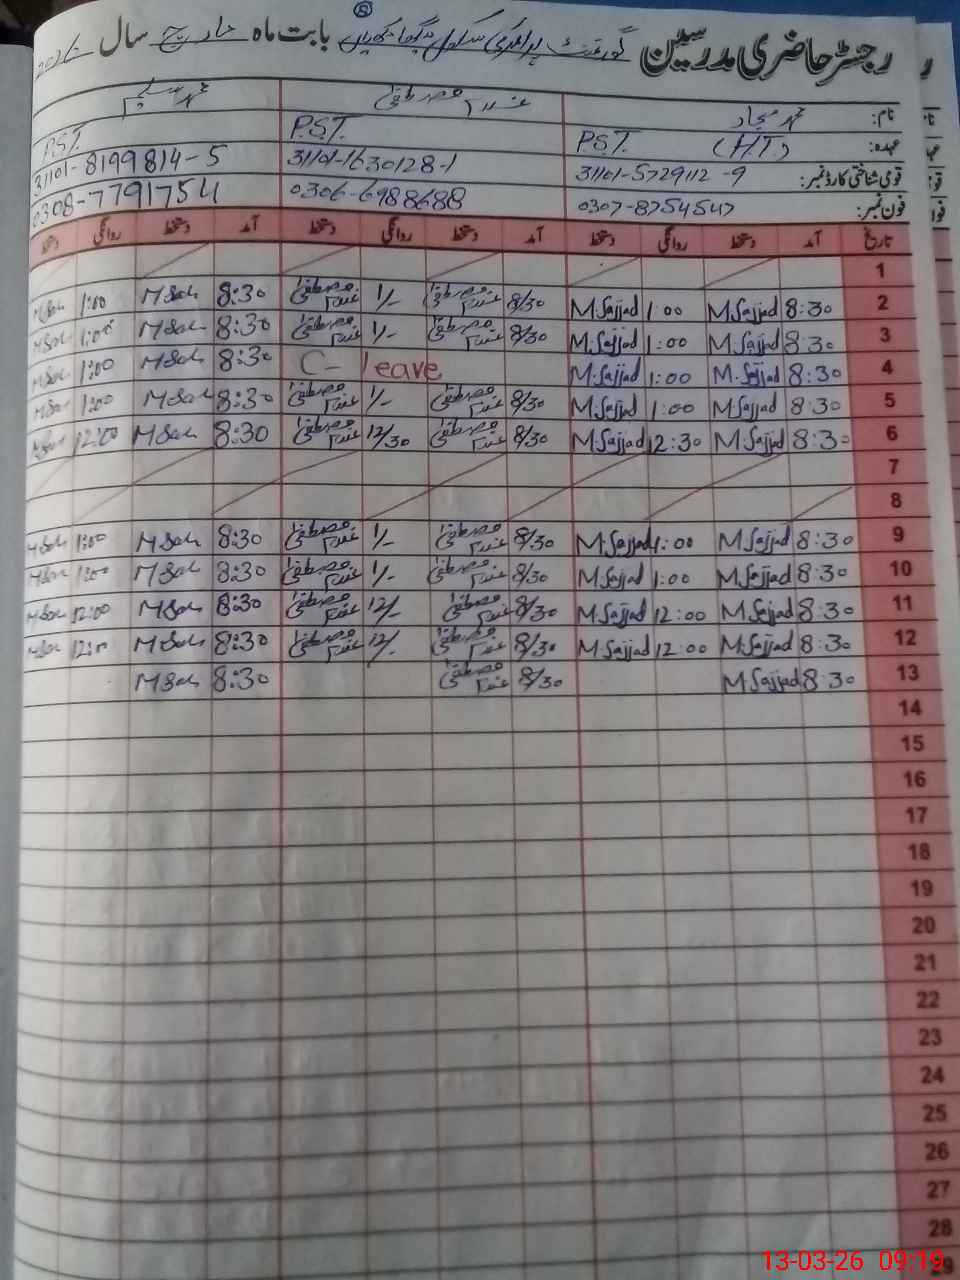 رجسٹر حاضری مدرسین گورنمنٹ پرائمری سکول بابت ماہ مارچ سال
نام: محمد سجاد غلام مصطفیٰ محمد سلیم
عہدہ: P.S.T (H.T) P.S.T. P.S.T.
قومی شناختی کارڈ نمبر: 31101-5729112-9 31101-1630128-1 31101-8199814-5
فون نمبر: 0307-8754547 0306-6988688 0308-7791754
تاریخ آمد دستخط روانگی دستخط آمد دستخط روانگی دستخط آمد دستخط روانگی دستخط
1
2 8:30 M.Sajjad 1:00 M.Sajjad 8/30 غلام مصطفیٰ 1/- غلام مصطفیٰ 8:30 MSal 1:00 MSal
3 8:30 M.Sajjad 1:00 M.Sajjad 8/30 غلام مصطفیٰ 1/- غلام مصطفیٰ 8:30 MSal 1:00 MSal
4 8:30 M.Sajjad 1:00 M.Sajjad C- leave 8:30 MSal 1:00 MSal
5 8:30 M.Sajjad 1:00 M.Sajjad 8/30 غلام مصطفیٰ 1/- غلام مصطفیٰ 8:30 MSal 1:00 MSal
6 8:30 M.Sajjad 12:30 M.Sajjad 8/30 غلام مصطفیٰ 12/30 غلام مصطفیٰ 8:30 MSal 12:00 MSal
7
8
9 8:30 M.Sajjad 1:00 M.Sajjad 8/30 غلام مصطفیٰ 1/- غلام مصطفیٰ 8:30 MSal 1:00 MSal
10 8:30 M.Sajjad 1:00 M.Sajjad 8/30 غلام مصطفیٰ 1/- غلام مصطفیٰ 8:30 MSal 1:00 MSal
11 8:30 M.Sajjad 12:00 M.Sajjad 8/30 غلام مصطفیٰ 12/- غلام مصطفیٰ 8:30 MSal 12:00 MSal
12 8:30 M.Sajjad 12:00 M.Sajjad 8/30 غلام مصطفیٰ 12/- غلام مصطفیٰ 8:30 MSal 12:00 MSal
13 8:30 M.Sajjad 8/30 غلام مصطفیٰ 8:30 MSal
14
15
16
17
18
19
20
21
22
23
24
25
26
27
28
29
13-03-26 09:19